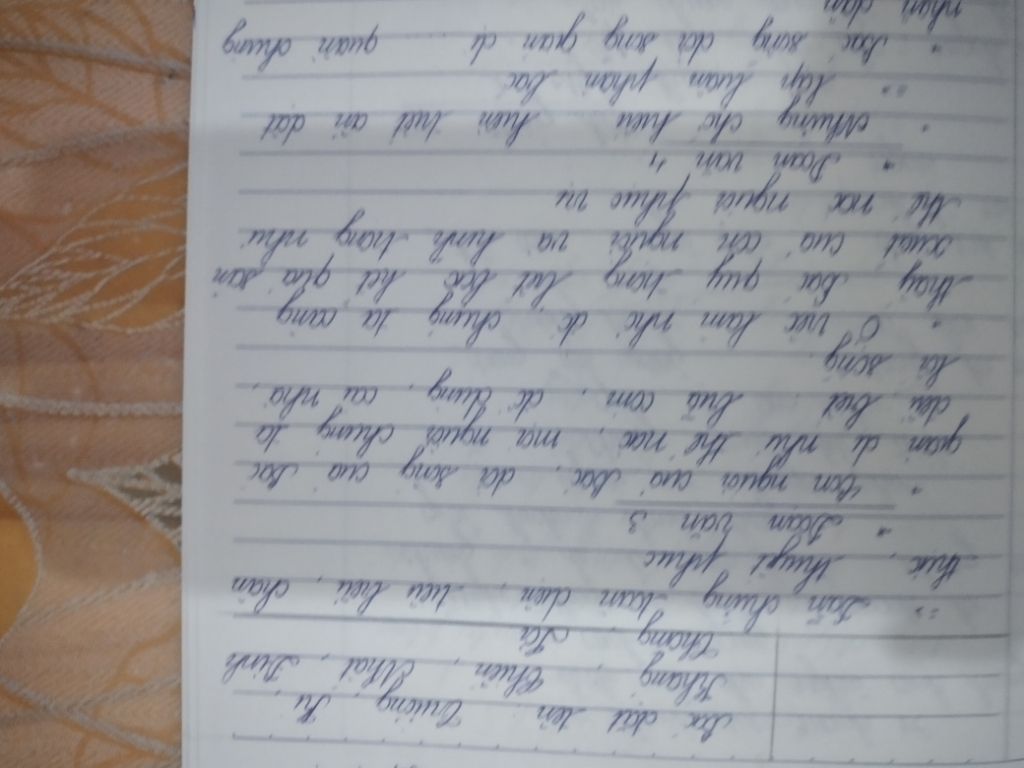 Bác đặt tên: Trường, Kì,
Kháng, Chiến, Nhất, Định
Thắng, Lợi
=> Dẫn chứng toàn diện, tiêu biểu, chân
thực, thuyết phục
* Đoạn văn 3
- Con người của Bác, đời sống của Bác
giản dị như thế nào, mọi người chúng ta
đều biết: bữa cơm, đồ dùng, cái nhà,
lối sống
- Ở việc làm nhỏ đó chúng ta càng
thấy Bác quý trọng biết bao kết quả sản
xuất của con người và kính trọng như
thế nào người phục vụ
* Đoạn văn 4
- Nhưng chớ hiểu hiền triết ẩn dật
=> lập luận phản bác
- Bác sống đời sống giản dị ... quần chúng
nhân dân